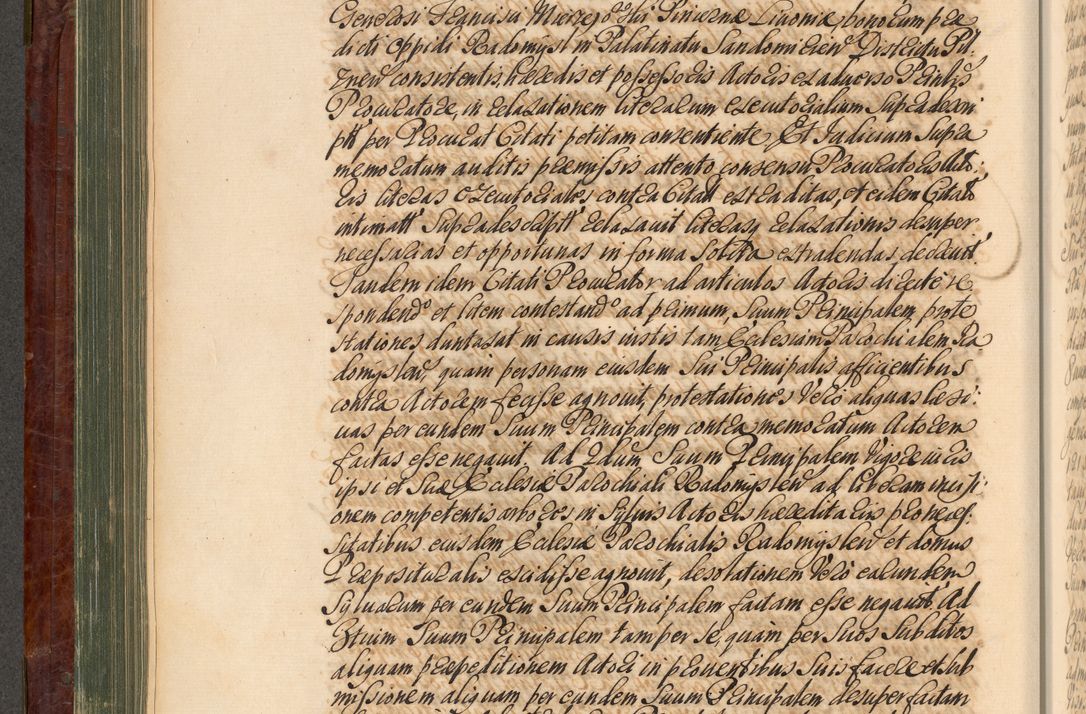 Generosi Francisci Mierzejo Ski Pincernæ Livoniæ bonorum præ
dicti Oppidi Radomysl in Palatinatu Sandomirien Districtu Pil:
znen consistentis, hæredis et possessoris Actoris ex adverso Prinlis
Procuratore, in relaxationem literarum executorialium supradescri
ptt per Procurat Citati petitam consentiente, Et Judicium Supra
memoratum auditis præmissis attento consensu Procuratoris Acto:
ris literas Executoriales contra Citatt extraditas, et eidem Citato
intimatt Supradescriptt relaxavit literasq relaxationis desuper
necessarias et opportunas in forma Solita extradendas decrevit
Tandem idem Citati Procurator ad articulos Actoris directe re
spondendo et litem contestando ad primum, Suum Principalem, prote
stationes duntaxat in causis iustis tam Ecclesiam Parochialem Ra
domyslen, quam personam eiusdem Sui Principalis afficientibus
contra Actorem fecisse agnovit, protestationes Vero aliquas læsi:
vas per eundem Suum Principalem contra memoratum Actorem
factas esse negavit Ad 2dum Suum Principalem Vigore iuris
ipsi et Suæ Ecclesiæ Parochiali Radomyslen ad liberam incisi:
onem competentis arbores in Sylvis Actoris hæreditariis pro neces
sitatibus eiusdem Ecclesiæ Parochialis Radomyslen et domus
Præposituralis excidisse agnovit, desolationem Vero earundem
Sylvarum per eundem Suum Principalem factam esse negavit. Ad
3tium Suum Principalem tam per Se, quam per Suos Subditos
aliquam præpeditionem Actori in proventibus Suis facere et sub
missionem aliquam per eundem Suum Principalem desuper factam